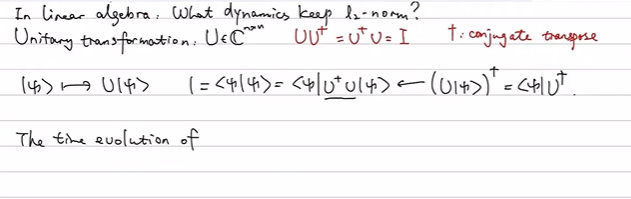 In linear algebra. What dynamics keep l₂-norm?
Unitary transformation. U∈ℂⁿˣⁿ UU† = U†U = I †: conjugate transpose
|ψ⟩ ↦ U|ψ⟩ 1 = ⟨ψ|ψ⟩ = ⟨ψ|U†U|ψ⟩ ← (U|ψ⟩)† = ⟨ψ|U†.
The time evolution of